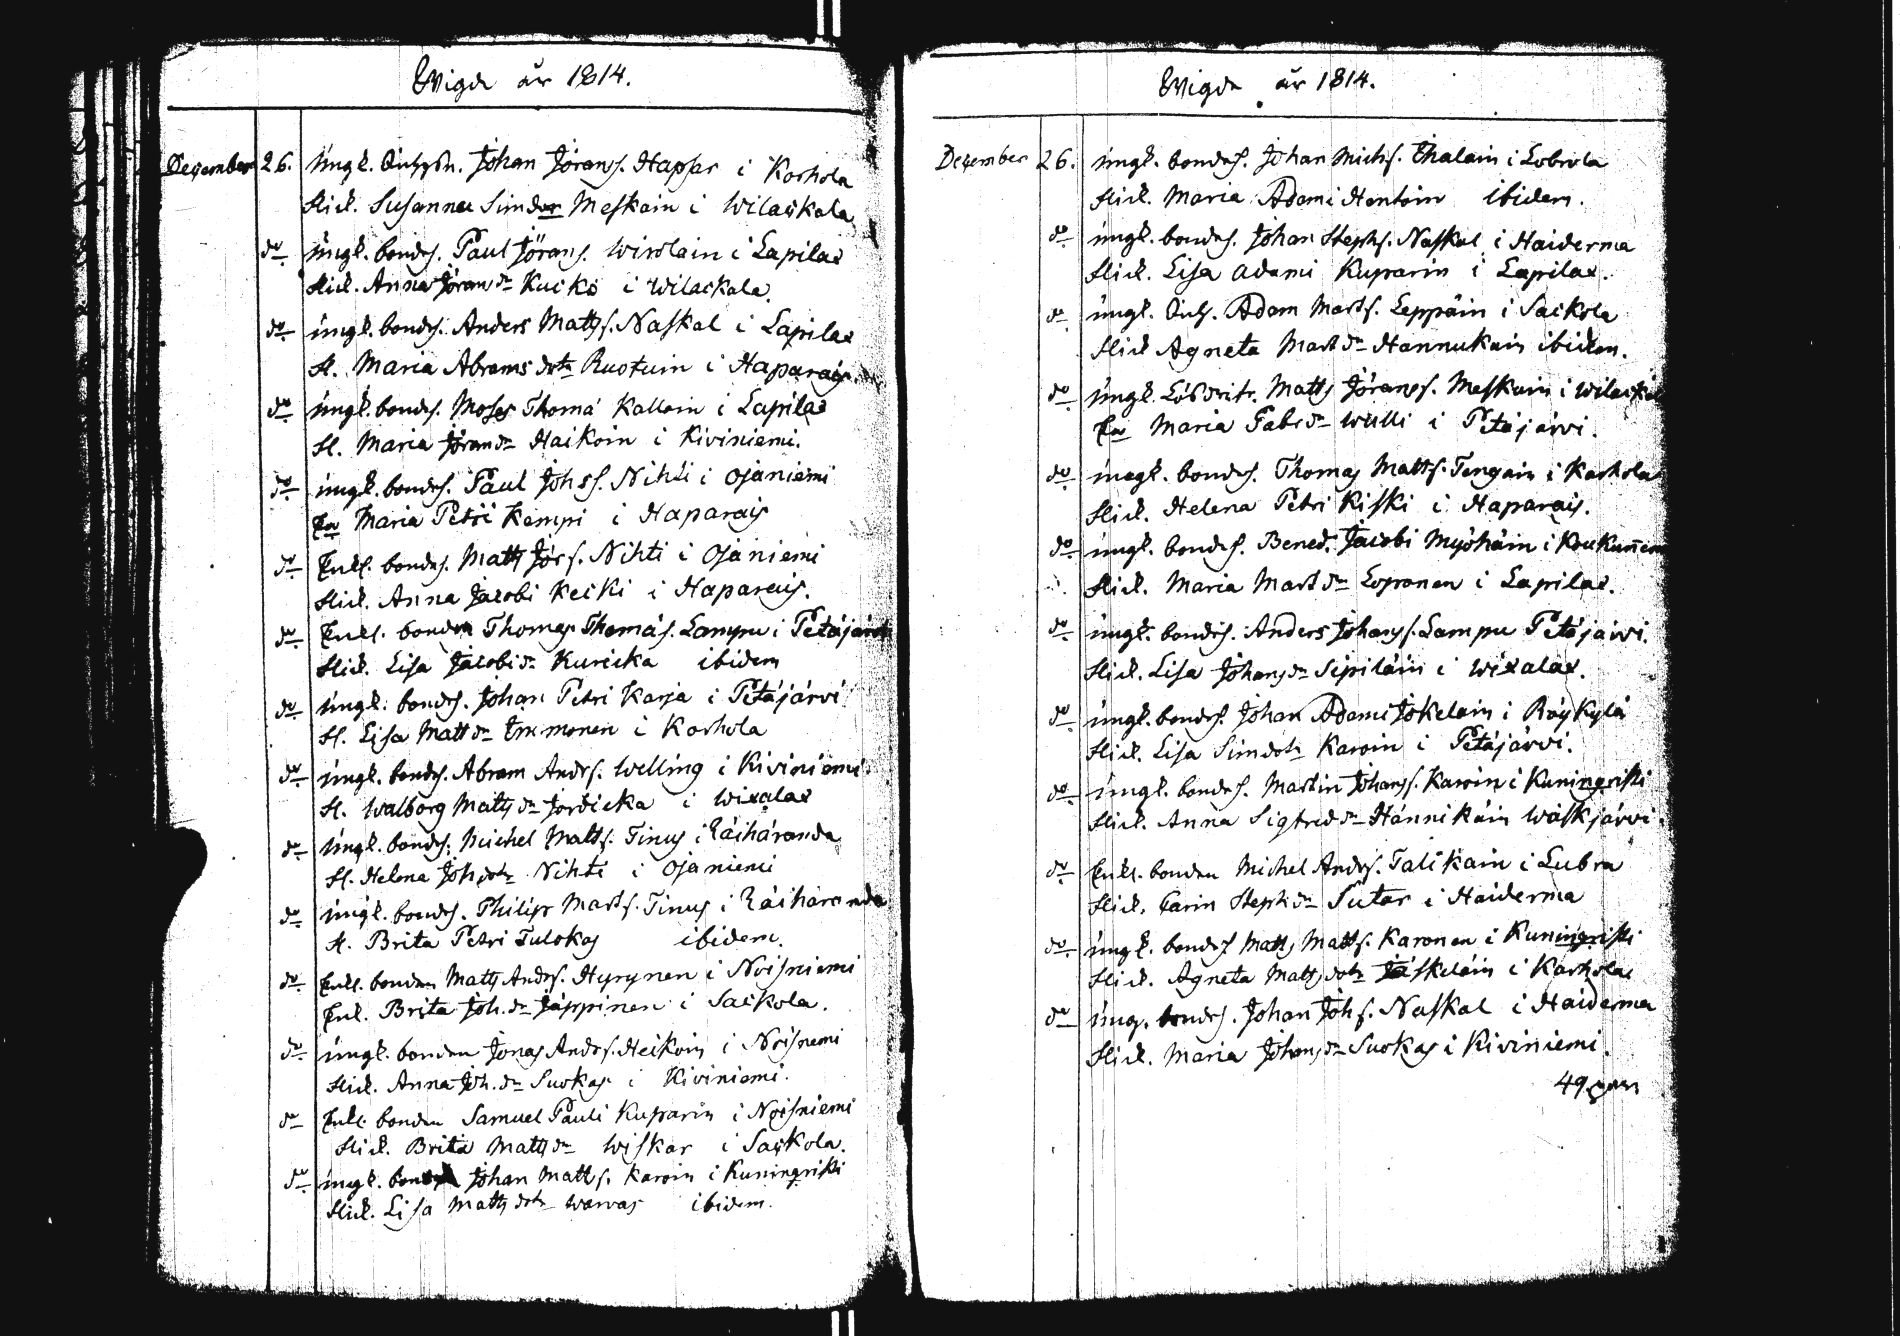 Wigde år 1814.
December 26. Ungk. Johan Jörans. Happar i Korhola
Hust. Susanna Simdor Meskain i Wilackala
do Ungk. bondes. Paul Jörans. Wirolain i Lapilax
Hust. Anna Joransdr Kuckå i Wilackala.
do Ungk. bondes. Anders Matts. Naskal i Lapilax
H. Maria Abramsdotr Ruotuin i Haparais.
do Ungk. bondes. Moses Thomá Kalloin i Lapilax
H. Maria Joransdr Haikoin i Kiviniemi.
do Ungk. bondes. Paul Johss. Nihti i Ojaniemi
Ea Maria Petri Kempi i Haparais
do Enkl. bondes. Matts Jörs. Nihti i Ojaniemi
Hust. Anna Jacobi Kecki i Haparais.
do Enkl. bonden Thomas Thomás. Lampu i Petäjärvi
Hust. Lisa Jacobidr Kuricka ibidem
do Ungk. bondes. Johan Petri Karja i Petäjärvi
H. Lisa Mattsdr Immonen i Korhola
do Ungk. bondes. Abram Andrs. Welling i Kiviniemi
H. Walborg Mattsdr Jordicka i Wixalax
do Ungk. bondes. Michel Matts. Tinus i Räihäranda
H. Helena Johsdotr Nihti i Ojaniemi
do Ungk. bondes. Philip Marts. Tinus i Räihäranda
H. Brita Petri Tulokas ibidem.
do Enkl. bonden Matts Andrs. Hyrynen i Noisniemi
Enk. Brita Joh.dr Jäppinen i Sackola.
do Ungk. bonden Jonas Andrs. Heikoin i Noisniemi
Hust. Anna Joh.dr Suokas i Kiviniemi.
do Enkl. bonden Samuel Pauli Kuparin i Noisniemi
Hust. Brita Mattsdr Wiskar i Sackola.
do Ungk. Johan Matts. Karoin i Kuningristi
Hust. Lisa Mattsdotr Warvas ibidem.
Wigde år 1814.
December 26. Ungk. bondes. Johan Michs. Thalain i Lobrola
Hust. Maria Adami Hentoin ibidem.
do Ungk. bondes. Johan Stephs. Naskal i Haiderma
Hust. Lisa Adami Kuparin i Lapilax.
do Ungk. Adam Marts. Leppäin i Sackola
Hust Agneta Martdr Hannukain ibidem.
do Ungk. Matts Jöranss. Meskain i Wilackala
Ea Maria Gabrdr Wulli i Petäjärvi.
do Ungk. bondes. Thomas Matts. Tengain i Karhola
Hust. Helena Petri Kiski i Haparais.
do Ungk. bondes. Bened. Jacobi Myöhäin i Koukunem
Hust. Maria Martdr Loponen i Lapilax.
do Ungk. bondes. Anders Johans. Lampu Petäjärvi.
Hust. Lisa Johansdr Sipiläin i Wixalax.
do Ungk. bondes. Johan Adami Jokelain i Röykylä
Hust. Lisa Simdotr Karoin i Petäjärvi.
do Ungk. bondes. Martin Johanss. Karoin i Kuningristi
Hust. Anna Sigfreddr Hännikäin Wäskjärvi.
do Enkl. bonden Michel Andrs. Talikain i Lubra
Hust. Carin Stephdr Sutar i Haiderma
do Ungk. bondes Matts Matts. Karonen i Kuningristi
Hust. Agneta Mattsdotr Jäskeläin i Karhola
do Ung. bondes. Johan Johs. Naskal i Haiderma
Hust. Maria Johansdr Suokas i Kiviniemi.
49 par